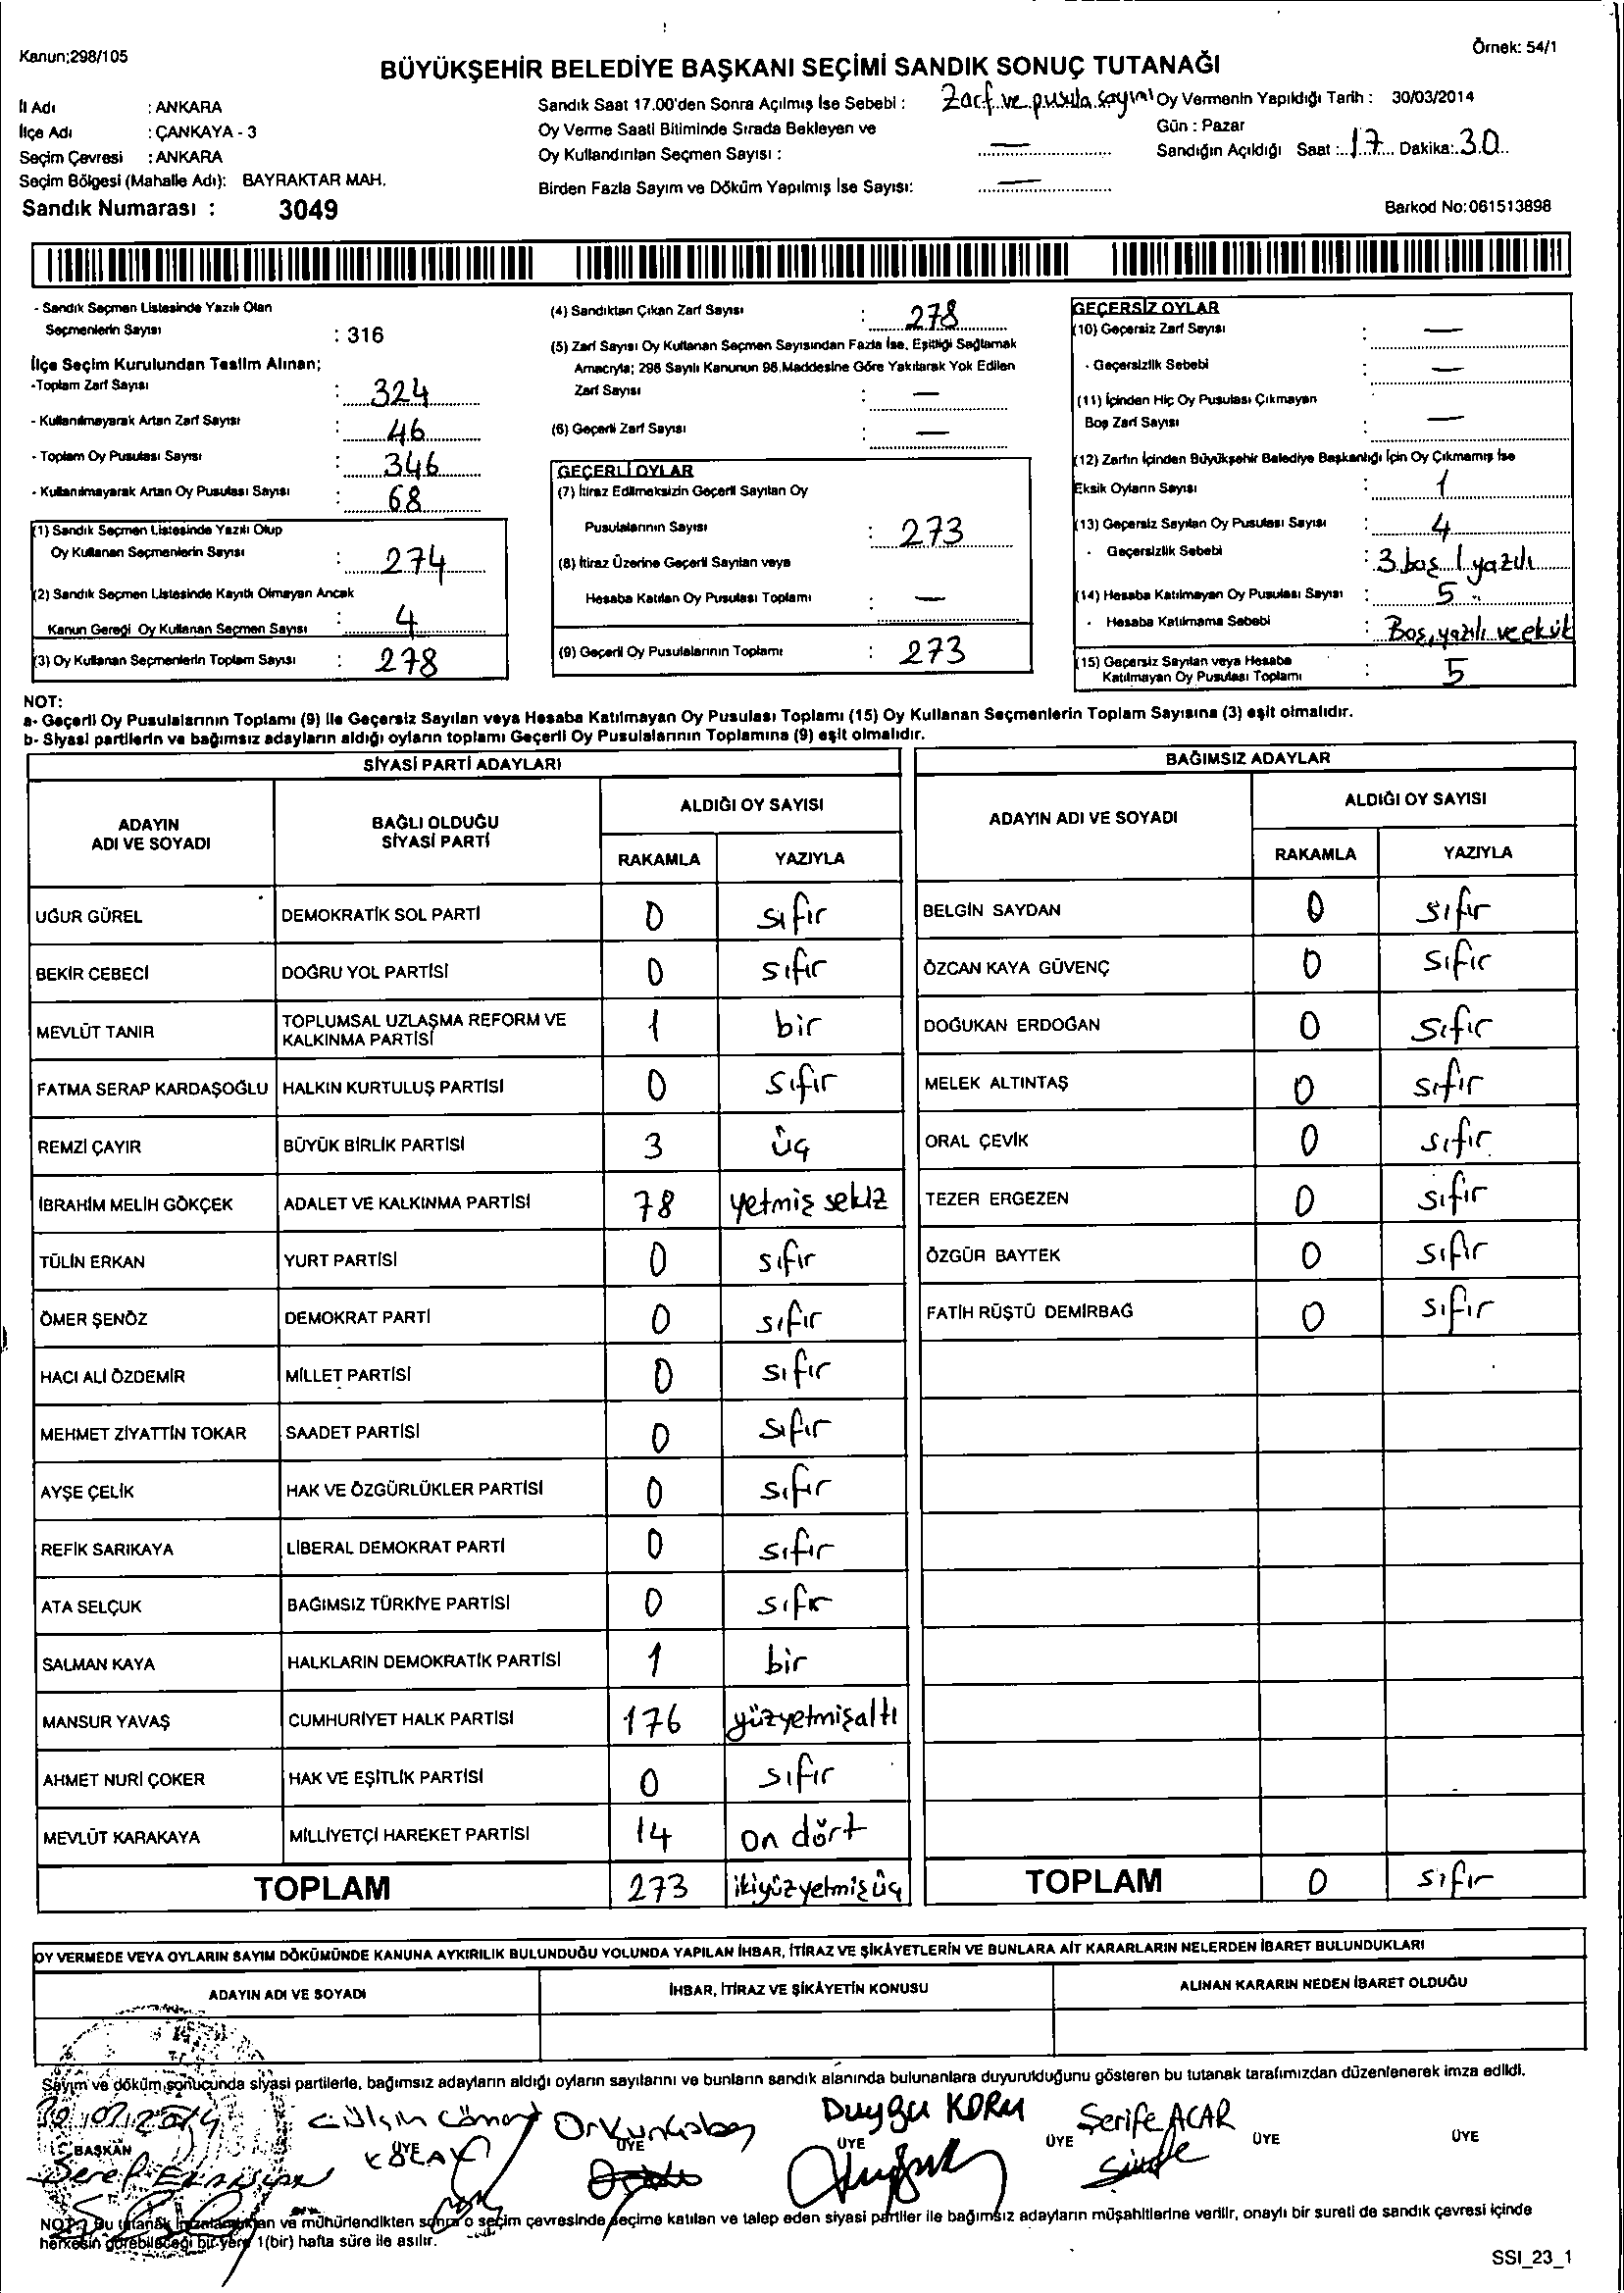 Kanun;298/105
Örnek: 54/1
BÜYÜKŞEHİR BELEDİYE BAŞKANI SEÇİMİ SANDIK SONUÇ TUTANAĞI
İl Adı : ANKARA
İlçe Adı : ÇANKAYA - 3
Seçim Çevresi : ANKARA
Seçim Bölgesi (Mahalle Adı): BAYRAKTAR MAH.
Sandık Numarası : 3049
Sandık Saat 17.00'den Sonra Açılmış İse Sebebi : Zarf ve pusula sayımı
Oy Verme Saati Bitiminde Sırada Bekleyen ve
Oy Kullandırılan Seçmen Sayısı : —
Birden Fazla Sayım ve Döküm Yapılmış İse Sayısı: —
Oy Vermenin Yapıldığı Tarih : 30/03/2014
Gün : Pazar
Sandığın Açıldığı Saat : 17 Dakika: 30
Barkod No:061513898
- Sandık Seçmen Listesinde Yazılı Olan
Seçmenlerin Sayısı : 316
İlçe Seçim Kurulundan Teslim Alınan;
-Toplam Zarf Sayısı : 324
- Kullanılmayarak Artan Zarf Sayısı : 46
- Toplam Oy Pusulası Sayısı : 346
- Kullanılmayarak Artan Oy Pusulası Sayısı : 68
(1) Sandık Seçmen Listesinde Yazılı Olup
Oy Kullanan Seçmenlerin Sayısı : 274
(2) Sandık Seçmen Listesinde Kayıtlı Olmayan Ancak
Kanun Gereği Oy Kullanan Seçmen Sayısı : 4
(3) Oy Kullanan Seçmenlerin Toplam Sayısı : 278
(4) Sandıktan Çıkan Zarf Sayısı : 278
(5) Zarf Sayısı Oy Kullanan Seçmen Sayısından Fazla İse, Eşitliği Sağlamak
Amacıyla; 298 Sayılı Kanunun 98.Maddesine Göre Yakılarak Yok Edilen
Zarf Sayısı : —
(6) Geçerli Zarf Sayısı : —
GEÇERLİ OYLAR
(7) İtiraz Edilmeksizin Geçerli Sayılan Oy
Pusulalarının Sayısı : 273
(8) İtiraz Üzerine Geçerli Sayılan veya
Hesaba Katılan Oy Pusulası Toplamı : —
(9) Geçerli Oy Pusulalarının Toplamı : 273
GEÇERSİZ OYLAR
(10) Geçersiz Zarf Sayısı : —
- Geçersizlik Sebebi : —
(11) İçinden Hiç Oy Pusulası Çıkmayan
Boş Zarf Sayısı : —
(12) Zarfın İçinden Büyükşehir Belediye Başkanlığı İçin Oy Çıkmamış İse
Eksik Oyların Sayısı : 1
(13) Geçersiz Sayılan Oy Pusulası Sayısı : 4
- Geçersizlik Sebebi : 3 boş 1 yazılı
(14) Hesaba Katılmayan Oy Pusulası Sayısı : 5
- Hesaba Katılmama Sebebi : Boş, yazılı ve eksik
(15) Geçersiz Sayılan veya Hesaba
Katılmayan Oy Pusulası Toplamı : 5
NOT:
a- Geçerli Oy Pusulalarının Toplamı (9) ile Geçersiz Sayılan veya Hesaba Katılmayan Oy Pusulası Toplamı (15) Oy Kullanan Seçmenlerin Toplam Sayısına (3) eşit olmalıdır.
b- Siyasi partilerin ve bağımsız adayların aldığı oyların toplamı Geçerli Oy Pusulalarının Toplamına (9) eşit olmalıdır.
SİYASİ PARTİ ADAYLARI
ADAYIN ADI VE SOYADI BAĞLI OLDUĞU SİYASİ PARTİ ALDIĞI OY SAYISI
RAKAMLA YAZIYLA
UĞUR GÜREL DEMOKRATİK SOL PARTİ 0 sıfır
BEKİR CEBECİ DOĞRU YOL PARTİSİ 0 sıfır
MEVLÜT TANIR TOPLUMSAL UZLAŞMA REFORM VE KALKINMA PARTİSİ 1 bir
FATMA SERAP KARDAŞOĞLU HALKIN KURTULUŞ PARTİSİ 0 sıfır
REMZİ ÇAYIR BÜYÜK BİRLİK PARTİSİ 3 üç
İBRAHİM MELİH GÖKÇEK ADALET VE KALKINMA PARTİSİ 78 yetmiş sekiz
TÜLİN ERKAN YURT PARTİSİ 0 sıfır
ÖMER ŞENÖZ DEMOKRAT PARTİ 0 sıfır
HACI ALİ ÖZDEMİR MİLLET PARTİSİ 0 sıfır
MEHMET ZİYATTİN TOKAR SAADET PARTİSİ 0 sıfır
AYŞE ÇELİK HAK VE ÖZGÜRLÜKLER PARTİSİ 0 sıfır
REFİK SARIKAYA LİBERAL DEMOKRAT PARTİ 0 sıfır
ATA SELÇUK BAĞIMSIZ TÜRKİYE PARTİSİ 0 sıfır
SALMAN KAYA HALKLARIN DEMOKRATİK PARTİSİ 1 bir
MANSUR YAVAŞ CUMHURİYET HALK PARTİSİ 176 yüzyetmişaltı
AHMET NURİ ÇOKER HAK VE EŞİTLİK PARTİSİ 0 sıfır
MEVLÜT KARAKAYA MİLLİYETÇİ HAREKET PARTİSİ 14 on dört
TOPLAM 273 ikiyüzyetmişüç
BAĞIMSIZ ADAYLAR
ADAYIN ADI VE SOYADI ALDIĞI OY SAYISI
RAKAMLA YAZIYLA
BELGİN SAYDAN 0 sıfır
ÖZCAN KAYA GÜVENÇ 0 sıfır
DOĞUKAN ERDOĞAN 0 sıfır
MELEK ALTINTAŞ 0 sıfır
ORAL ÇEVİK 0 sıfır
TEZER ERGEZEN 0 sıfır
ÖZGÜR BAYTEK 0 sıfır
FATİH RÜŞTÜ DEMİRBAĞ 0 sıfır
TOPLAM 0 sıfır
OY VERMEDE VEYA OYLARIN SAYIM DÖKÜMÜNDE KANUNA AYKIRILIK BULUNDUĞU YOLUNDA YAPILAN İHBAR, İTİRAZ VE ŞİKÂYETLERİN VE BUNLARA AİT KARARLARIN NELERDEN İBARET BULUNDUKLARI
ADAYIN ADI VE SOYADI İHBAR, İTİRAZ VE ŞİKÂYETİN KONUSU ALINAN KARARIN NEDEN İBARET OLDUĞU
Sayım ve döküm sonucunda siyasi partilerle, bağımsız adayların aldığı oyların sayılarını ve bunların sandık alanında bulunanlara duyurulduğunu gösteren bu tutanak tarafımızdan düzenlenerek imza edildi.
Duygu KORU Şerife ACAR
BAŞKAN ÜYE ÜYE ÜYE ÜYE ÜYE ÜYE
NOT: Bu tutanak imzalandıktan ve mühürlendikten sonra o seçim çevresinde seçime katılan ve talep eden siyasi partiler ile bağımsız adayların müşahitlerine verilir, onaylı bir sureti de sandık çevresi içinde
herkesin görebileceği bir yere 1(bir) hafta süre ile asılır.
SSI_23_1